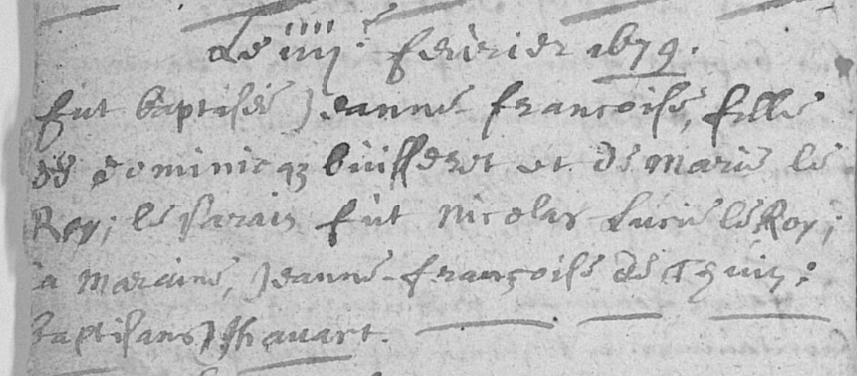 Le iiij.e febvrier 1679.
fut baptisée Jeanne françoise, fille
de dominicqz buisseret et de Marie le
Roy; le parain fut Nicolas Lucie le Roy;
la Maraine, Jeanne-françoise de Thuin:
baptisans J. havart.